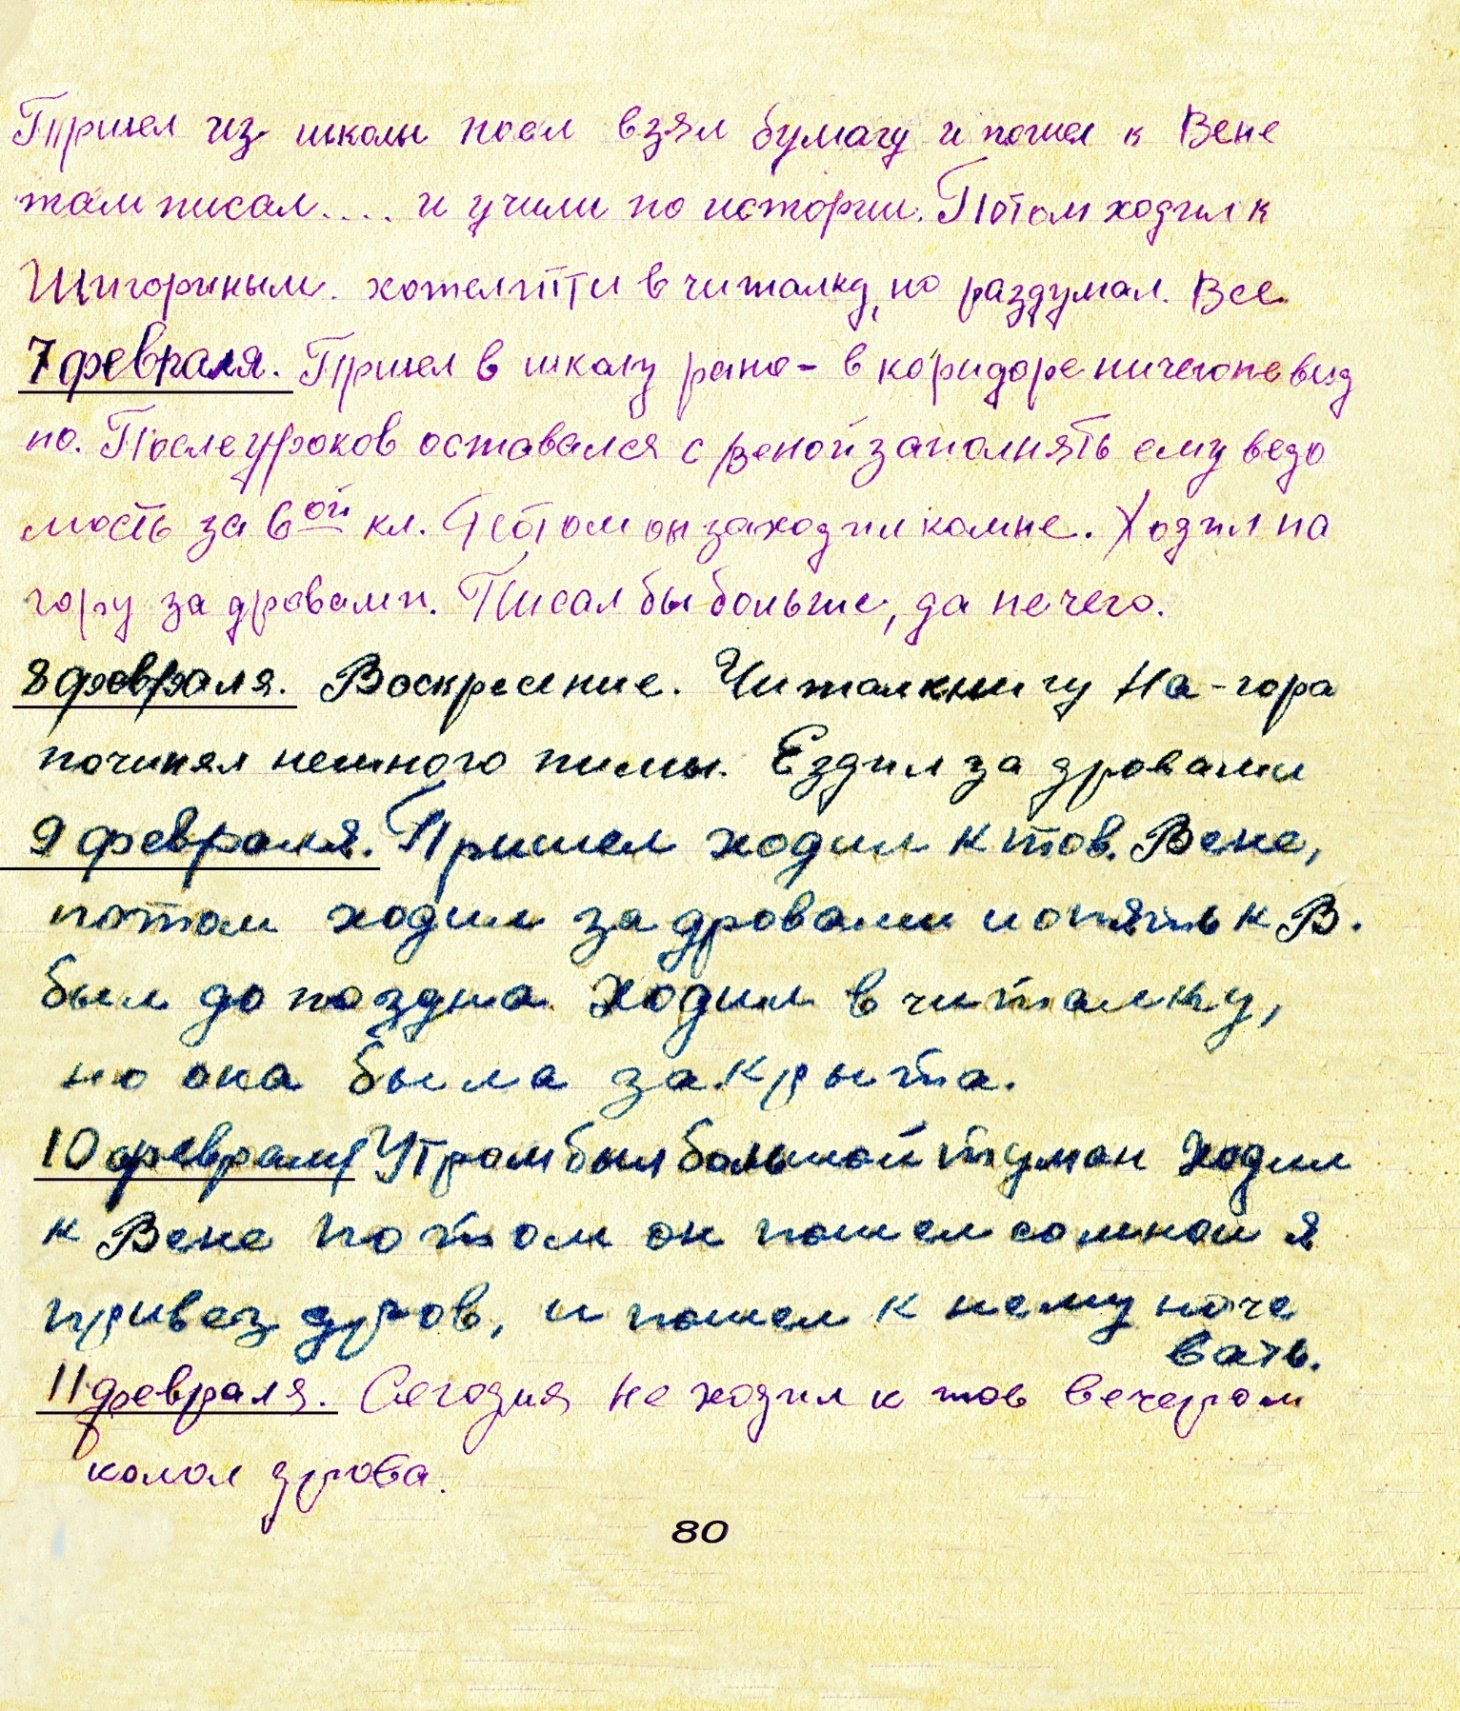 Пришел из школы поел взял бумагу и пошел к Вене
там писал.... и учили по истории. Потом ходил к
Шигориным. хотел итти в читалку, но раздумал. Все.
7 февраля. Пришел в школу рано - в коридоре ничего не вид
но. После уроков оставался с Веной заполнять ему ведо
мость за 6ой кл. Потом он заходил ко мне. Ходил на
гору за дровами. Писал бы больше, да нечего.
8 февраля. Воскресение. Читал книгу На-гора
починял немного пимы. Ездил за дровами
9 февраля. Пришел ходил к тов. Вене,
потом ходил за дровами и опять к В.
был до поздна. Ходил в читалку,
но она была закрыта.
10 февраля Утром был большой туман Ходил
к Вене потом он пошел со мной я
привез дров, и пошел к нему ноче
вать.
11 февраля. Сегодня не ходил к тов вечером
колол дрова.
80